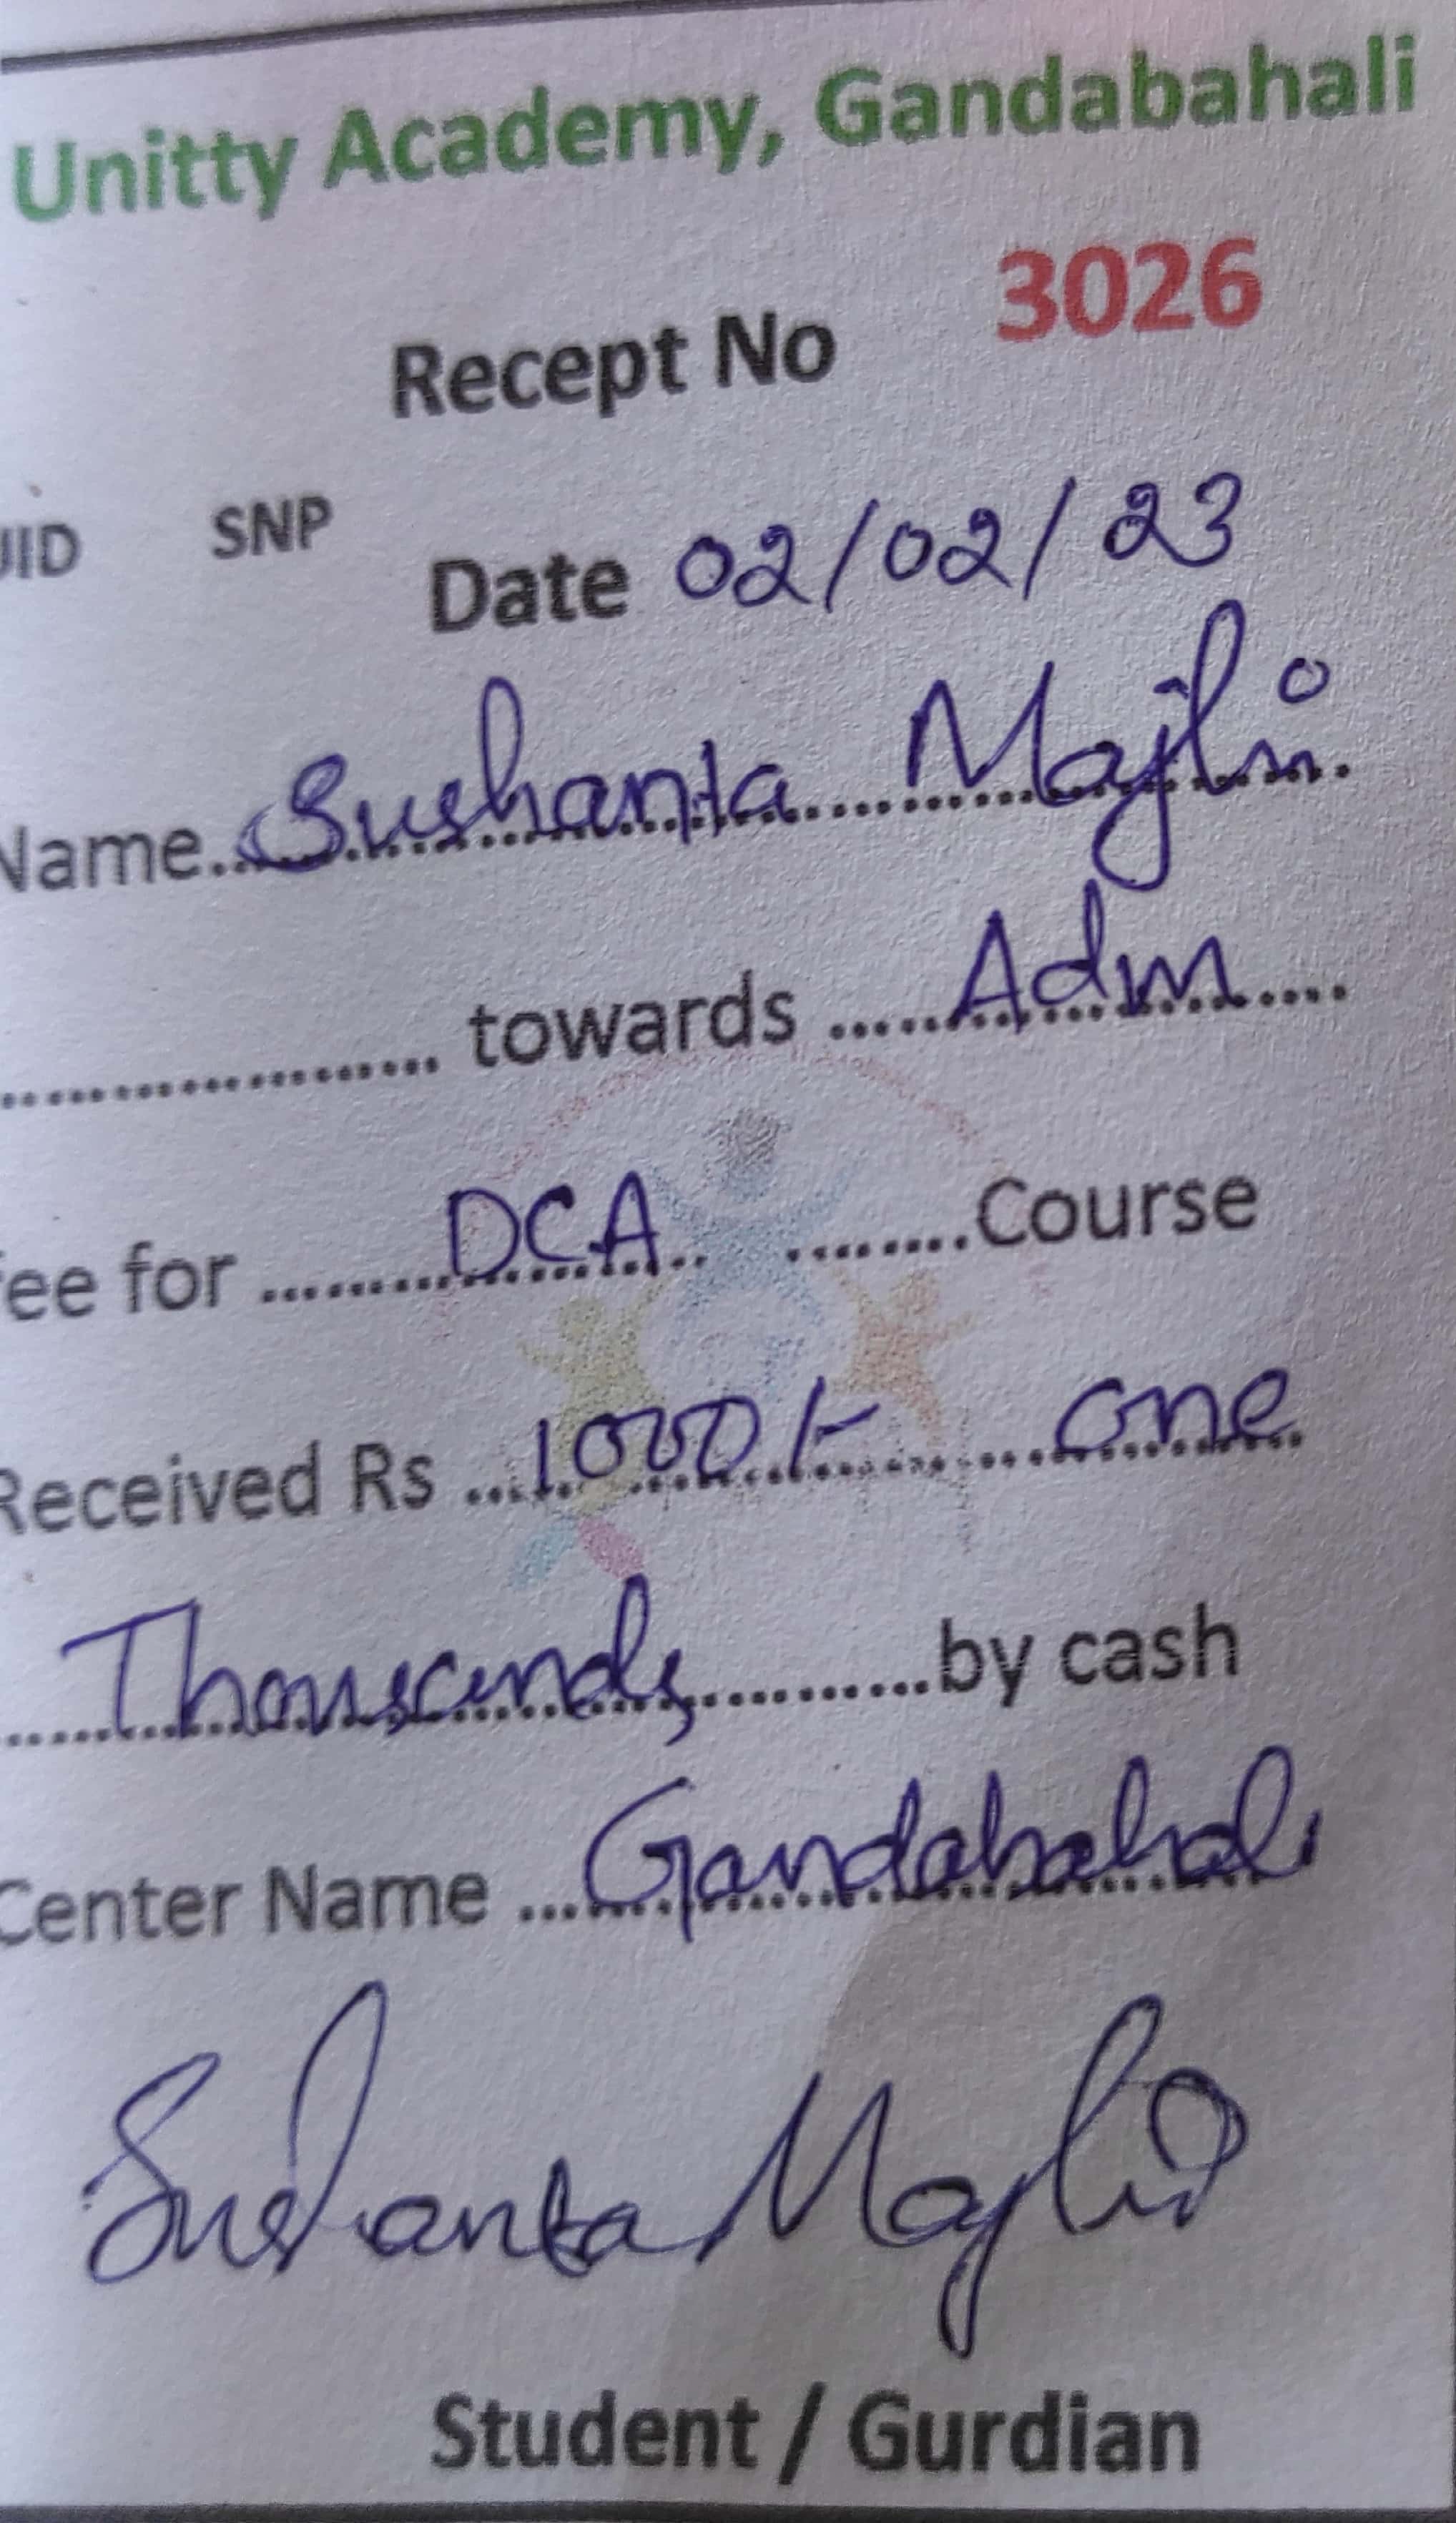 Unitty Academy, Gandabahali
Recept No 3026
UID SNP
Date 02/02/23
Name Sushanta Majhi
towards Adm
fee for DCA Course
Received Rs 1000/- one
Thousands by cash
Center Name Gandabahali
Sushanta Majhi
Student / Gurdian